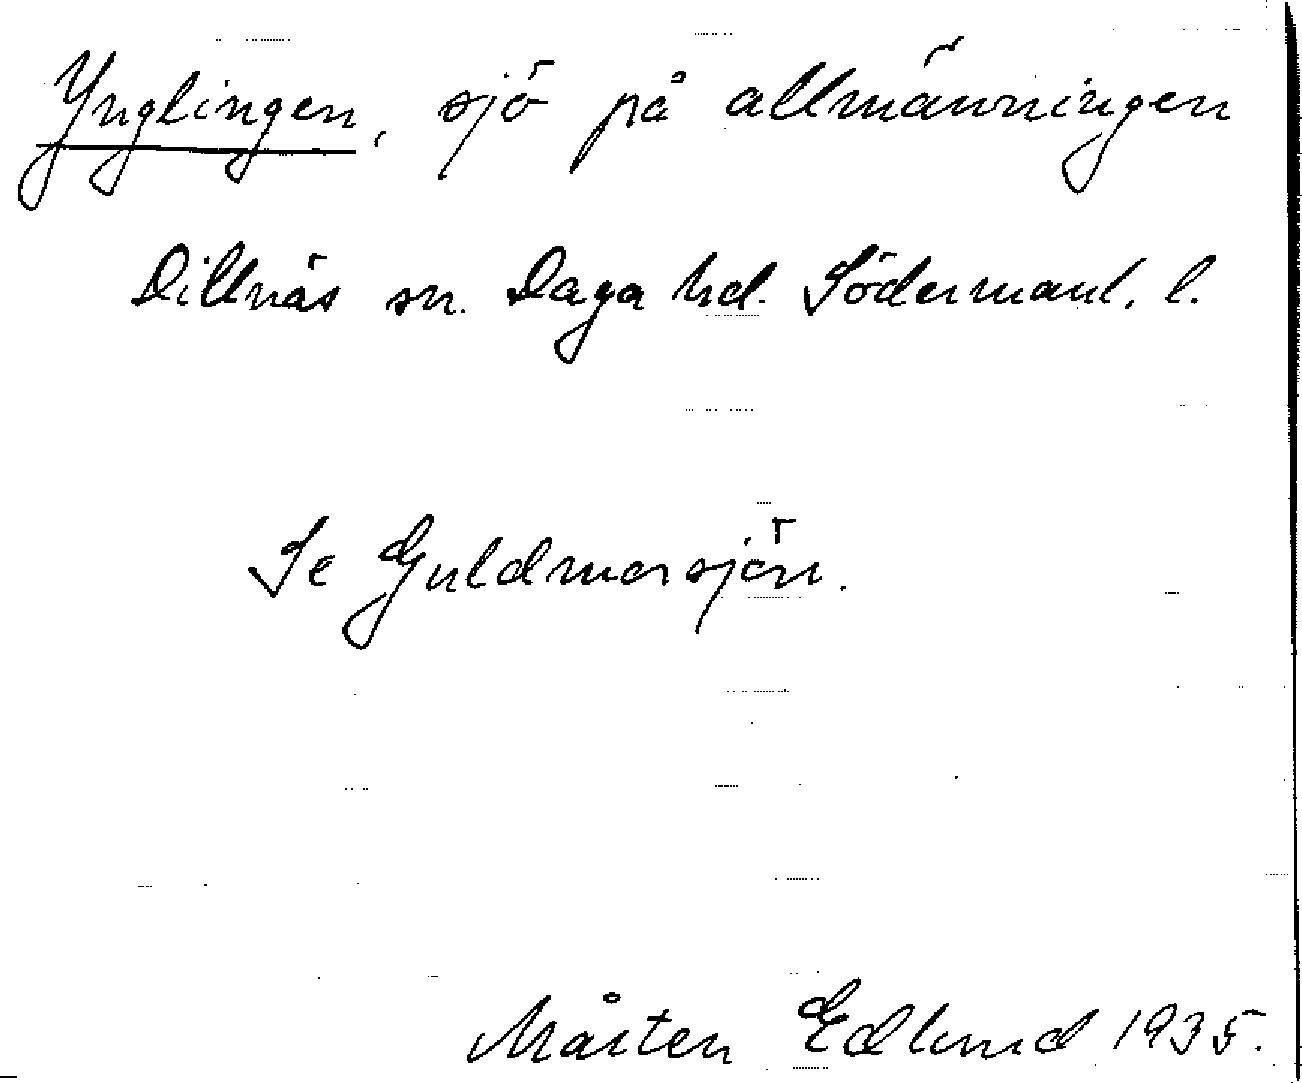 Ynglingen, sjö på allmänningen
Dillnäs sn. Daga hd. Södermanl. l.
Se Guldmarsjön.
Mårten Edlund 1935.